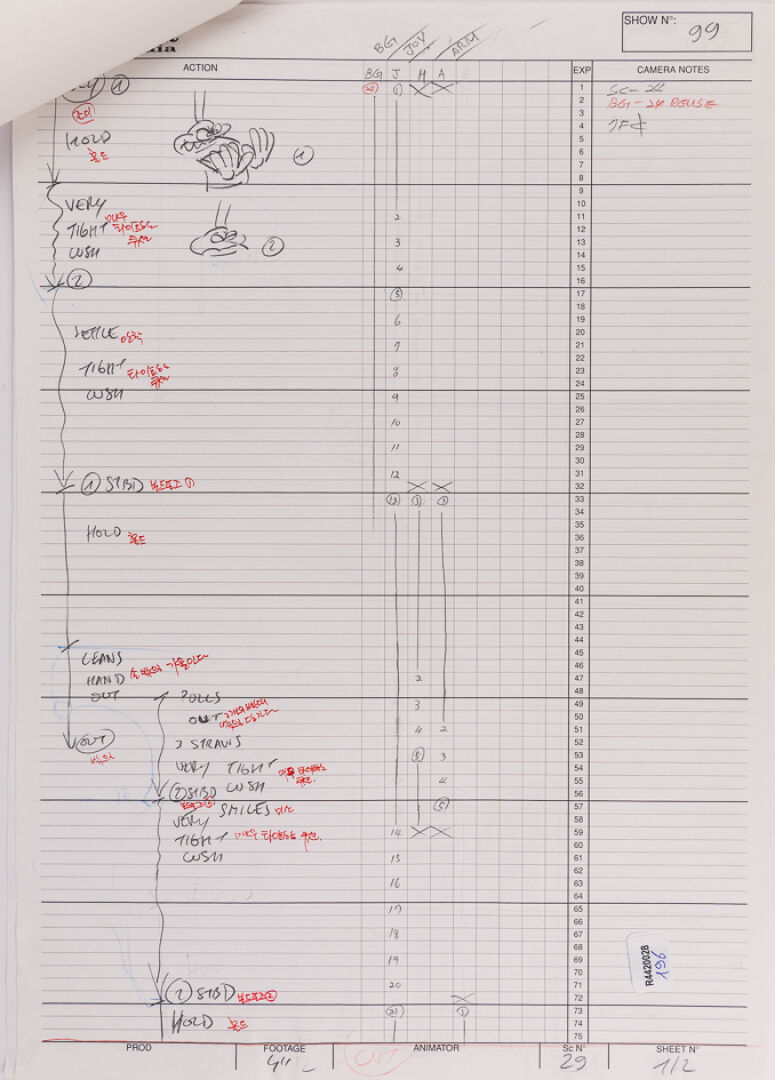 SHOW N°: 99
BG JOY ARM
ACTION BG J H A EXP CAMERA NOTES
① 24 ① 1 SC-24
2 BG-24 REUSE
3
HOLD 4 7F¢
홀드 5
① 6
7
8
9
VERY 10
매우 2 11
TIGHT 타이트한 12
쿠션 3 13
CUSH ② 14
4 15
② 16
⑤ 17
18
6 19
SETTLE 안착 20
7 21
22
TIGHT 타이트한 8 23
쿠션 24
CUSH 9 25
26
10 27
28
11 29
30
12 31
① STBD 보드포즈 ① 32
⑬ ① ① 33
34
35
HOLD 홀드 36
37
38
39
40
41
42
43
44
LEANS 45
손 밖으로 기울이다 46
HAND 2 47
OUT PULLS 48
3 49
OUT 50
OUT 4 2 51
밖으로 3 STRAWS 52
⑤ 3 53
VERY TIGHT 매우 타이트한 54
쿠션. 4 55
② STBD CUSH 56
SMILES 미소 ⑤ 57
VERY 58
TIGHT 매우 타이트한 쿠션. 14 59
60
CUSH 15 61
62
16 63
64
17 65
66
18 67
68
19 69
70
20 71
② STBD 보드포즈② 72
㉑ ① 73
HOLD 홀드 74
75
R4420028
196
PROD FOOTAGE ANIMATOR Sc N° SHEET N°
29 1/2